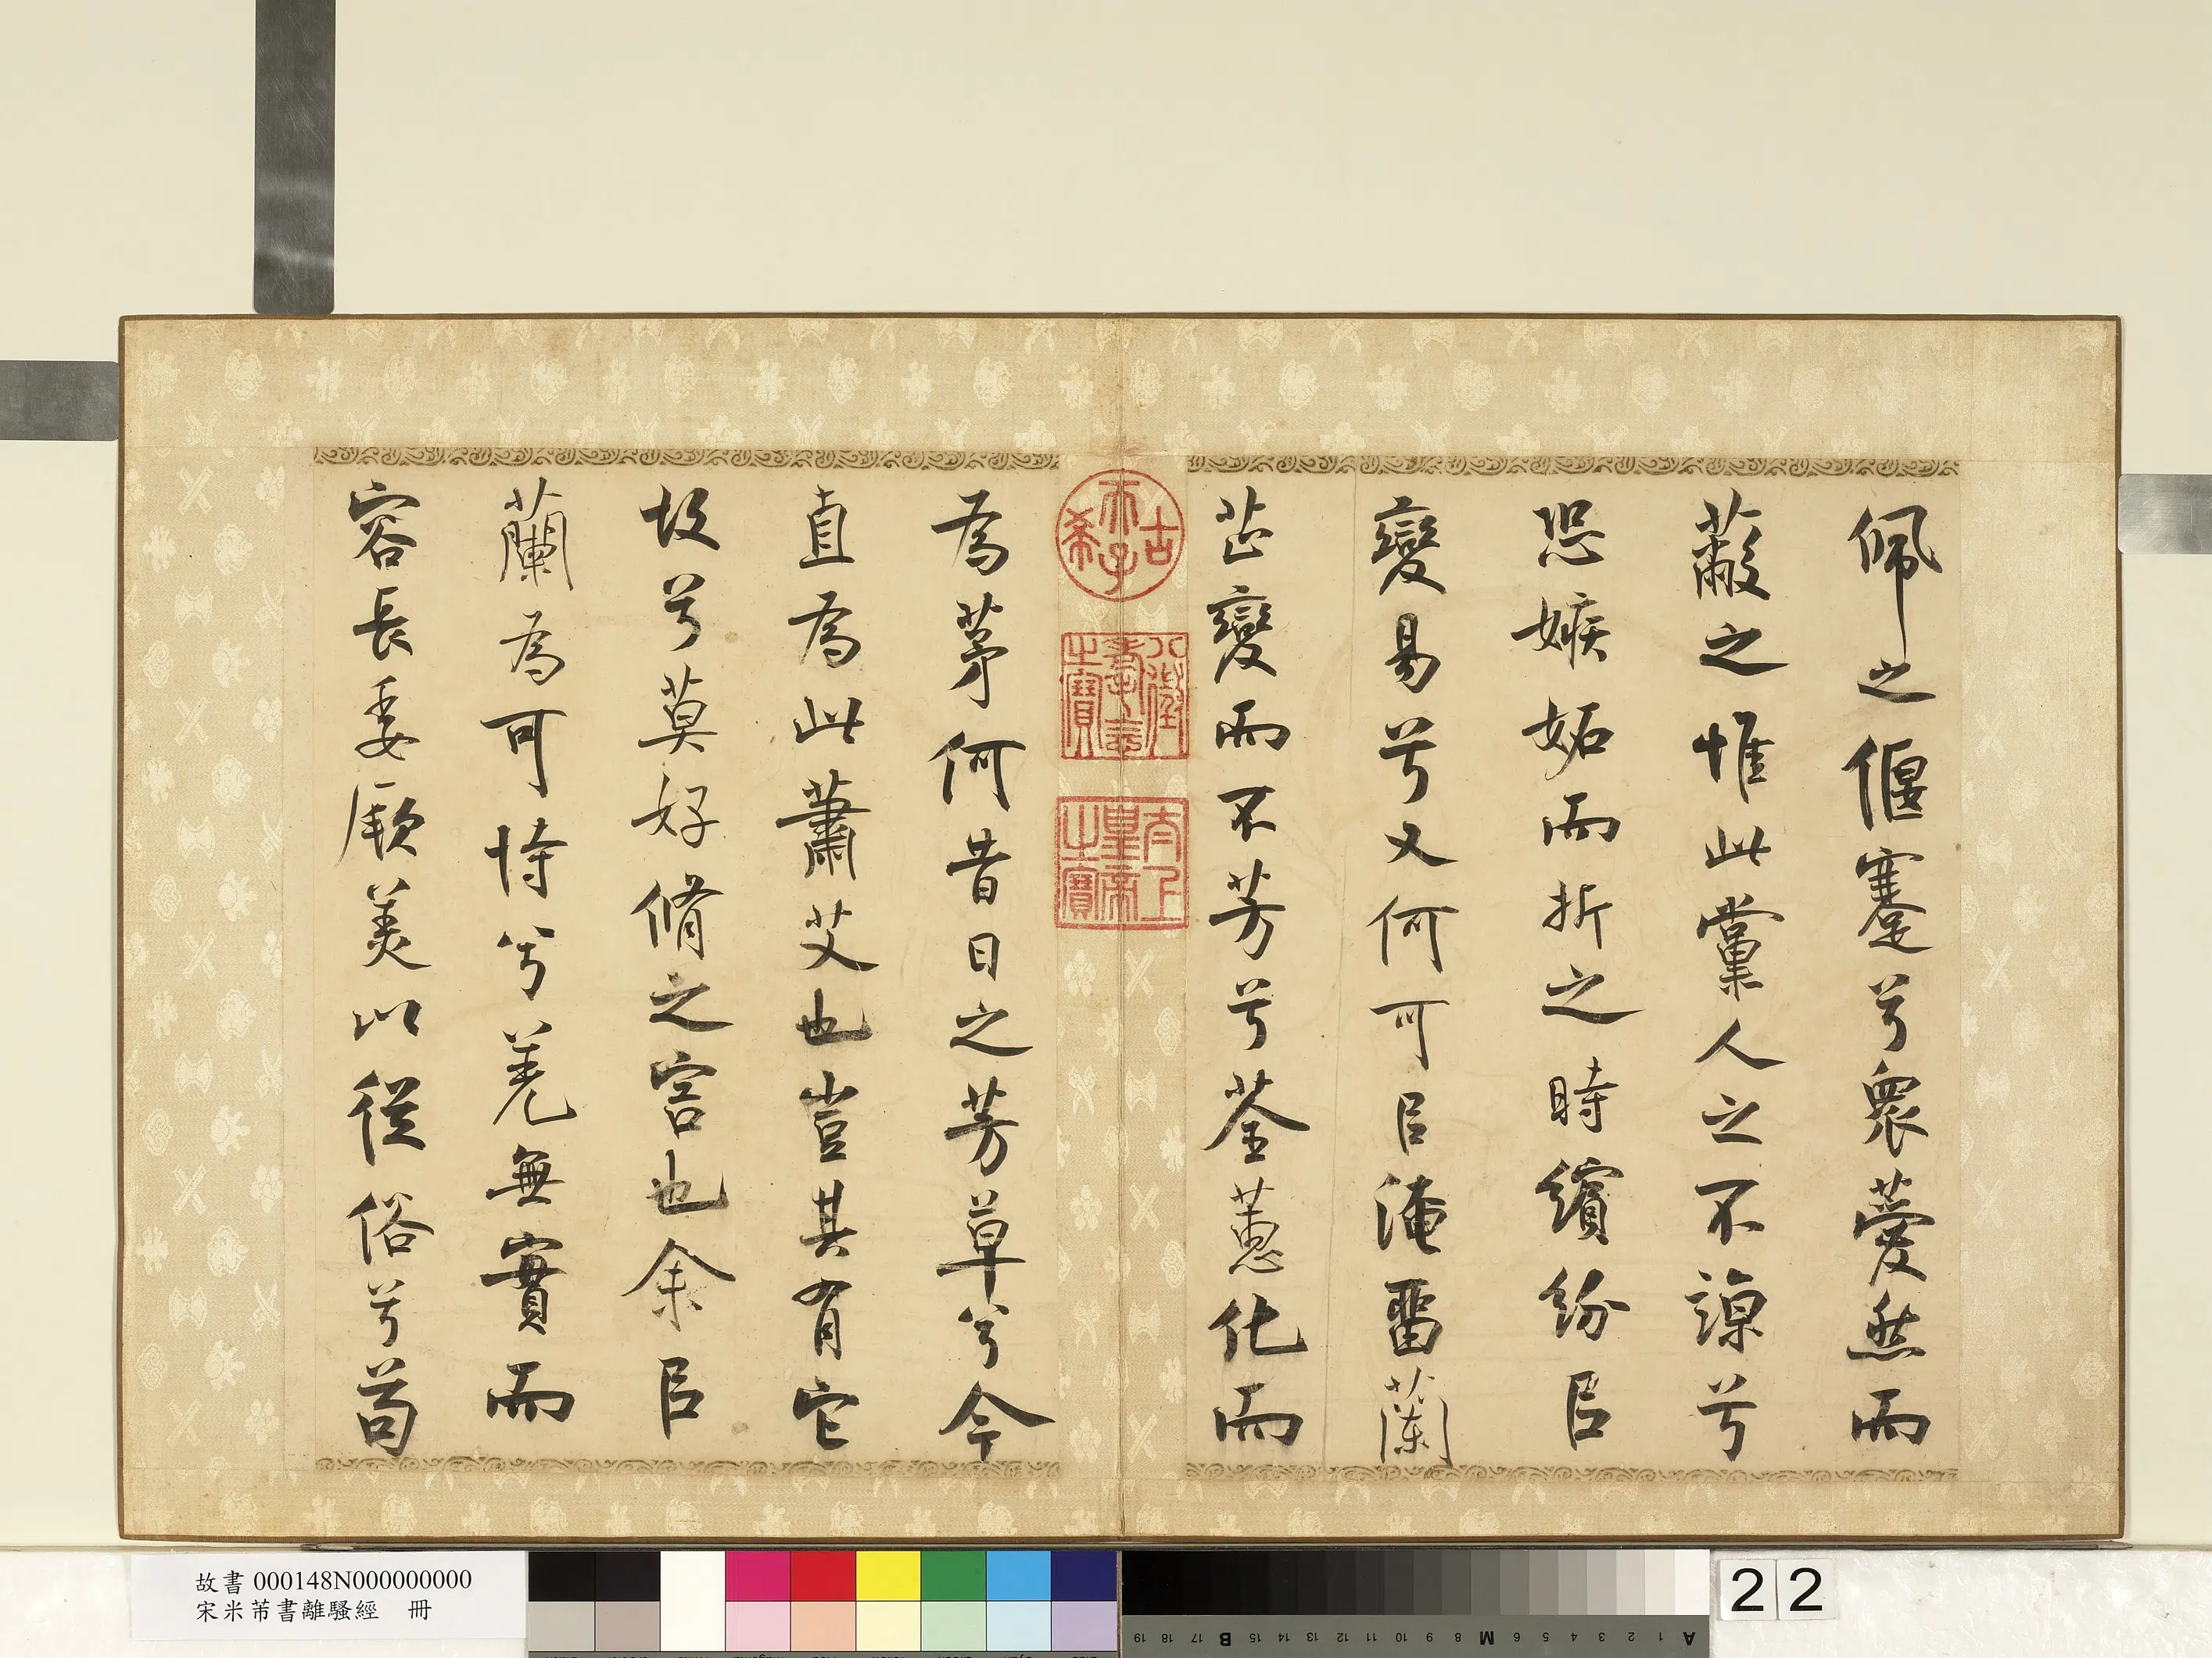 佩之偃蹇兮衆薆然而
蔽之惟此黨人之不諒兮
恐嫉妬而折之時繽紛㠯
變易兮又何可㠯淹畱蘭
芷變而不芳兮荃蕙化而
古希天子
八徵耄念之寶
太上皇帝之寶
為茅何昔日之芳草兮今
直為此蕭艾也豈其有它
故兮莫好脩之害也余㠯
蘭為可恃兮羌無實而
容長委厥美以從俗兮苟
故書 000148N000000000
宋米芾書離騷經 冊
22
19 18 17 B 15 14 13 12 11 10 9 8 M 6 5 4 3 2 1 A